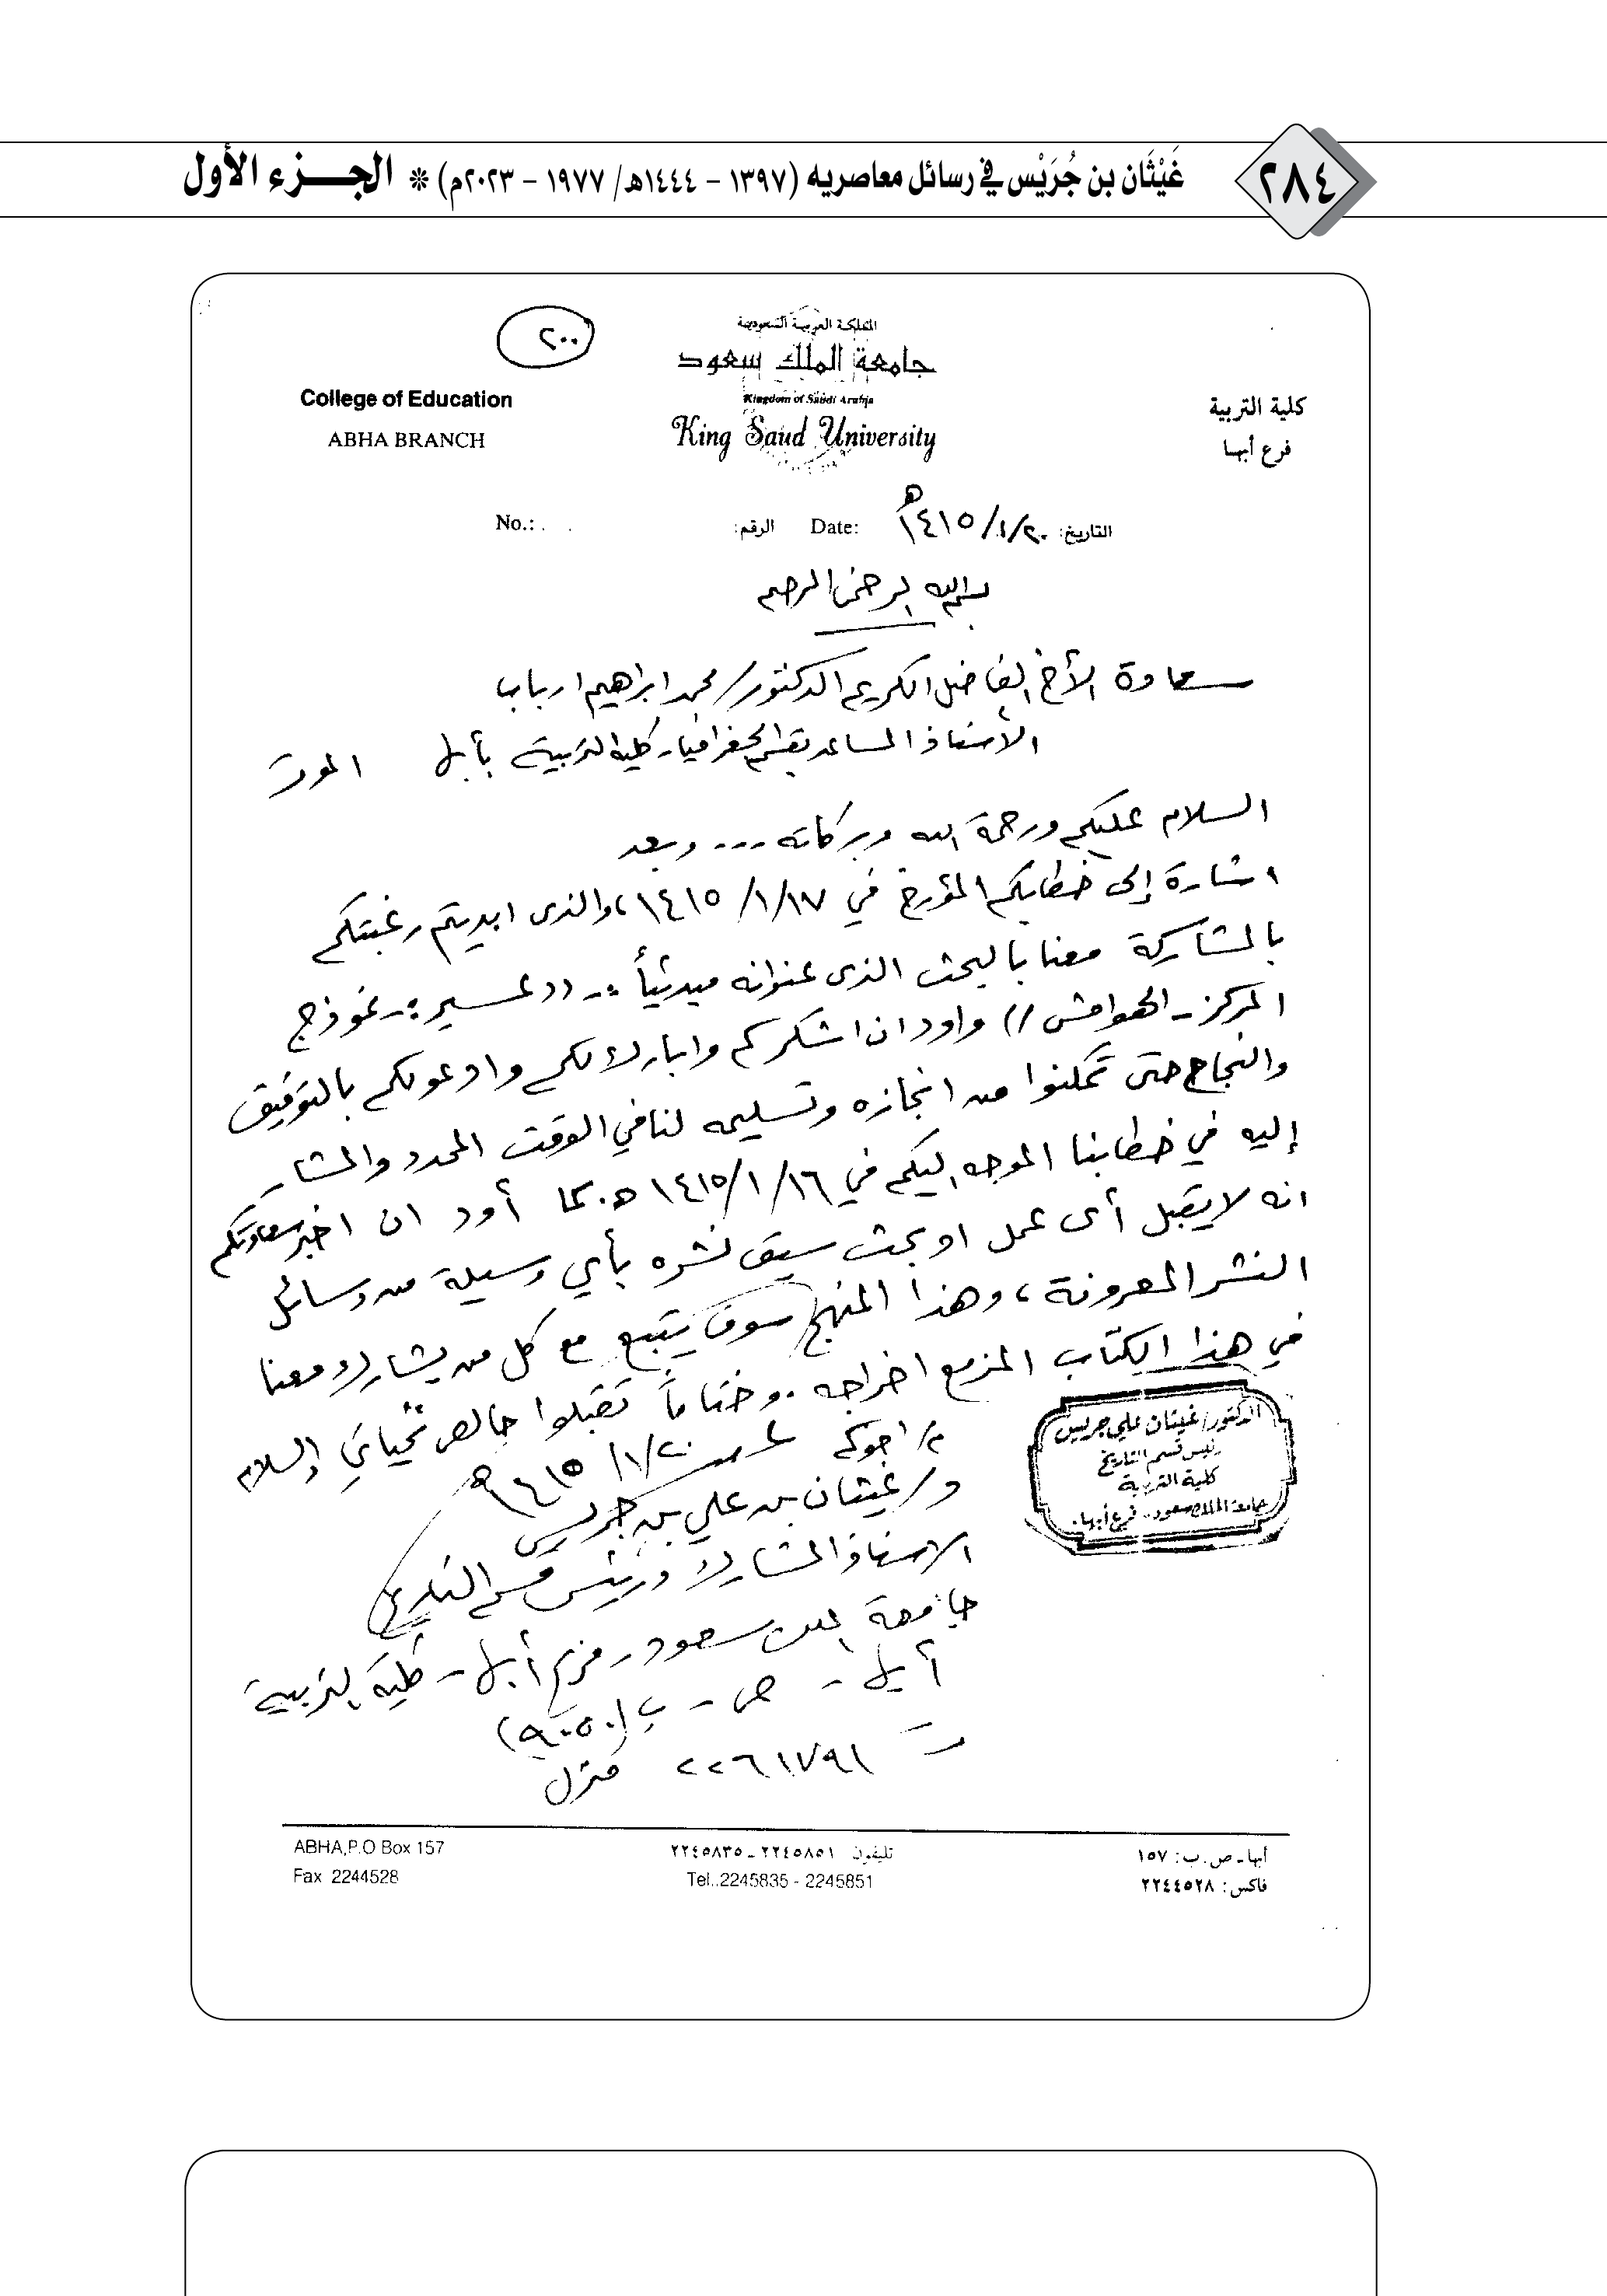 ٢٨٤
غَيْثَان بن جُرَيْس في رسائل معاصريه (١٣٩٧ - ١٤٤٤هـ/ ١٩٧٧ - ٢٠٢٣م) * الجزء الأول
٢٠٠
المملكة العربية السعودية
جامعة الملك سعود
Kingdom of Saudi Arabia
King Saud University
كلية التربية
فرع أبها
College of Education
ABHA BRANCH
التاريخ: ١٤١٥/١/٢٠هـ Date: الرقم: No.:
بسم الله الرحمن الرحيم
سعادة الأخ الفاضل الكريم الدكتور/ محمد ابراهيم ارباب
الأستاذ المساعد بقسم الجغرافيا - كلية التربية بأبها الموقر
السلام عليكم ورحمة الله وبركاته --- وبعد
اشارة إلى خطابكم المؤرخ في ١٤١٥/١/١٧، والذى ابديتم رغبتكم
بالمشاركة معنا بالبحث الذى عنوانه مبدئياً :- ((عسير :- نموذج
المركز - الهوامش)) واود ان اشكركم وابارك لكم وادعو لكم بالتوفيق
والنجاح حتى تتمكنوا من انجازه وتسليمه لنا في الوقت المحدد والمشار
إليه في خطابنا الموجه اليكم في ١٤١٥/١/١٦هـ. كما أود ان اخبر سعادتكم
انه لا يقبل أى عمل او بحث سبق نشره بأي وسيلة من وسائل
النشر المعروفة، وهذا المنهج سوف يتبع مع كل من يشارك معنا
في هذا الكتاب المزمع اخراجه. وختاماً تقبلوا خالص تحياتي والسلام
اخوكم
١٤١٥/١/٢٠هـ
د/ غيثان بن علي بن جريس
الاستاذ المشارك ورئيس قسم التاريخ
جامعة الملك سعود - فرع أبها - كلية التربية
أبها - ص - ب (٩٠٥٠)
ت ٢٢٦١٧٩١ منزل
الدكتور/ غيثان علي جريس
رئيس قسم التاريخ
كلية التربية
جامعة الملك سعود - فرع أبها.
أبها - ص.ب: ١٥٧
فاكس: ٢٢٤٤٥٢٨
تليفون ٢٢٤٥٨٥١ - ٢٢٤٥٨٣٥
Tel..2245835 - 2245851
ABHA,P.O Box 157
Fax 2244528